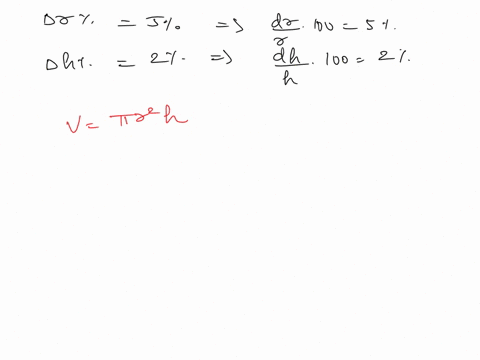 Δr% = 5% => dr/r · 100 = 5%.
Δh%. = 2%. => dh/h · 100 = 2%.
V = πr²h